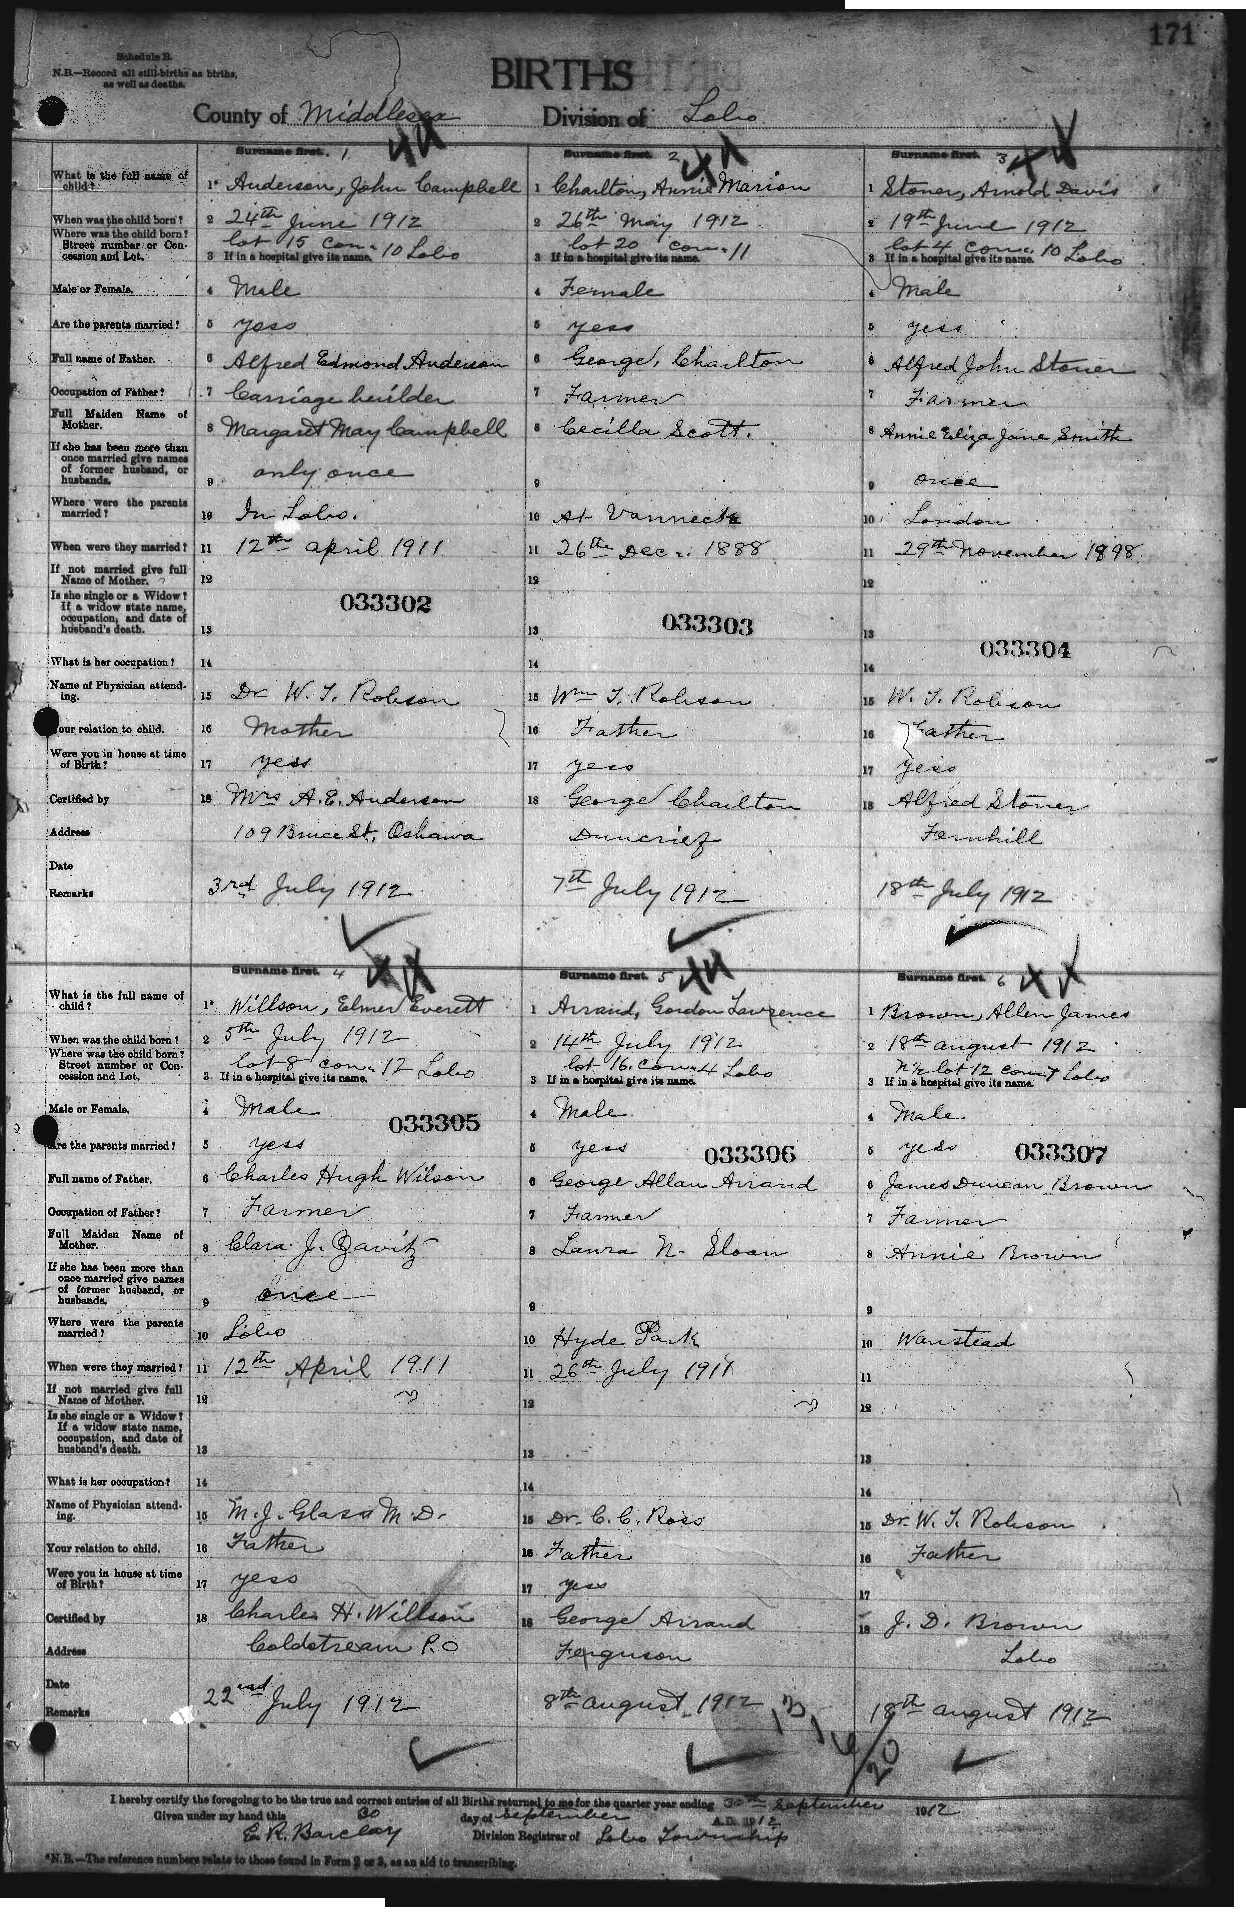 171
Schedule B.
N.B.—Record all still-births as births,
as well as deaths.
BIRTHS
County of Middlesex Division of Lobo
Surname first. 1 Surname first. 2 Surname first. 3
What is the full name of child? 1* Anderson, John Campbell 1 Charlton, Annie Marion 1 Stoner, Arnold Davis
When was the child born? 2 24th June 1912 2 26th May 1912 2 19th June 1912
Where was the child born? Street number or Concession and Lot. lot 15 con. 10 Lobo lot 20 con. 11 lot 4 con. 10 Lobo
3 If in a hospital give its name. 3 If in a hospital give its name. 3 If in a hospital give its name.
Male or Female. 4 Male 4 Female 4 Male
Are the parents married? 5 yess 5 yess 5 yess
Full name of Father. 6 Alfred Edmond Anderson 6 George, Charlton 6 Alfred John Stoner
Occupation of Father? 7 Carriage builder 7 Farmer 7 Farmer
Full Maiden Name of Mother. 8 Margaret May Campbell 8 Cecilla Scott. 8 Annie Eliza Jane Smith
If she has been more than once married give names of former husband, or husbands. 9 only once 9 9 once
Where were the parents married? 10 In Lobo. 10 At Vanneck 10 London
When were they married? 11 12th april 1911 11 26th Dec. 1888 11 29th November 1898
If not married give full Name of Mother. 12 12 12
033302 033303 033304
Is she single or a Widow? If a widow state name, occupation, and date of husband's death. 13 13 13
What is her occupation? 14 14 14
Name of Physician attending. 15 Dr W. T. Robson 15 Wm T. Robson 15 W. T. Robson
Your relation to child. 16 Mother 16 Father 16 Father
Were you in house at time of Birth? 17 yess 17 yess 17 yess
Certified by 18 Mrs A. E. Anderson 18 George Charlton 18 Alfred Stoner
Address 109 Bruce St, Oshawa Duncrief Fernhill
Date
Remarks 3rd July 1912 7th July 1912 18th July 1912
Surname first. 4 Surname first. 5 Surname first. 6
What is the full name of child? 1* Willson, Elmer Everett 1 Arrand, Gordon Lawrence 1 Brown, Allen James
When was the child born? 2 5th July 1912 2 14th July 1912 2 18th august 1912
Where was the child born? Street number or Concession and Lot. lot 8 con. 12 Lobo lot 16, con. 4 Lobo N½ lot 12 con 7 Lobo
3 If in a hospital give its name. 3 If in a hospital give its name. 3 If in a hospital give its name.
Male or Female. 4 Male 4 Male 4 Male
033305 033306 033307
Are the parents married? 5 yess 5 yess 5 yess
Full name of Father. 6 Charles Hugh Wilson 6 George Allan Arrand 6 James Duncan Brown
Occupation of Father? 7 Farmer 7 Farmer 7 Farmer
Full Maiden Name of Mother. 8 Clara J. Zavitz 8 Laura N. Sloan 8 Annie Brown
If she has been more than once married give names of former husband, or husbands. 9 once 9 9
Where were the parents married? 10 Lobo 10 Hyde Park 10 Wanstead
When were they married? 11 12th April 1911 11 26th July 1911 11
If not married give full Name of Mother. 12 12 12
Is she single or a Widow? If a widow state name, occupation, and date of husband's death. 13 13 13
What is her occupation? 14 14 14
Name of Physician attending. 15 M. J. Glass M.D. 15 Dr. C. C. Ross 15 Dr. W. T. Robson
Your relation to child. 16 Father 16 Father 16 Father
Were you in house at time of Birth? 17 yess 17 yess 17
Certified by 18 Charles H. Willson 18 George Arrand 18 J. D. Brown
Address Coldstream P.O Ferguson Lobo
Date
Remarks 22nd July 1912 8th august 1912 18th august 1912
I hereby certify the foregoing to be the true and correct entries of all Births returned to me for the quarter year ending 30th September 1912
Given under my hand this 30 day of September A.D. 1912
E. R. Barclay Division Registrar of Lobo Township
*N.B.—The reference numbers relate to those found in Form 2 or 3, as an aid to transcribing.